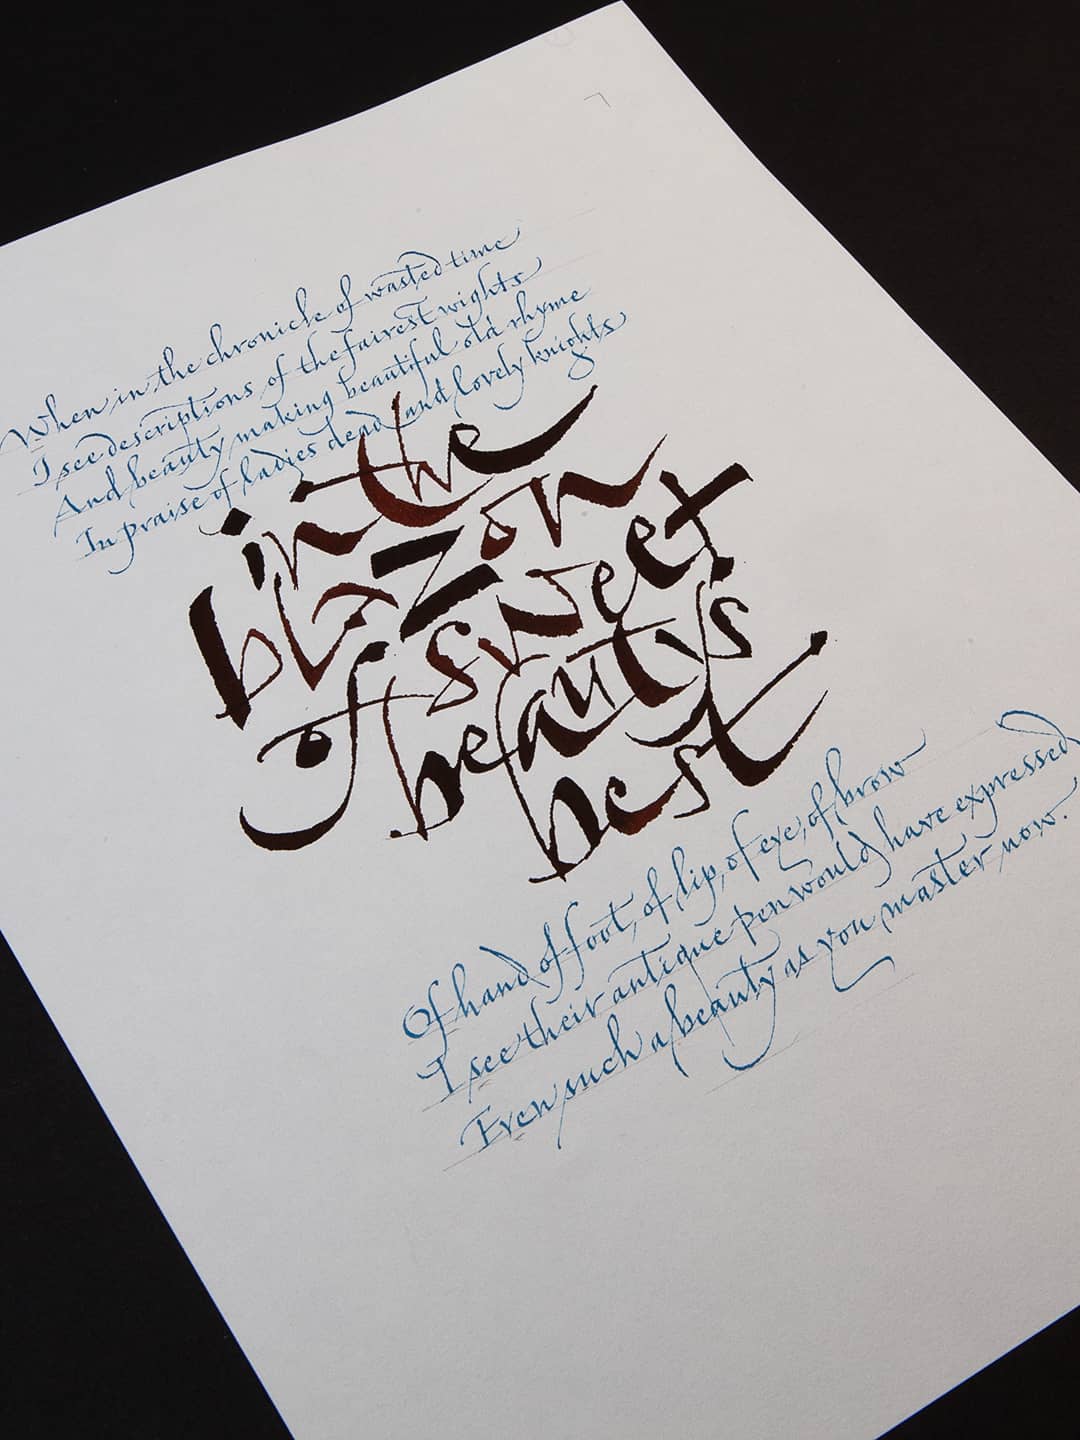 When in the chronicle of wasted time
I see descriptions of the fairest wights
And beauty making beautiful old rhyme
In praise of ladies dead and lovely knights
in the
blazon
of sweet
beauty's
best
Of hand of foot, of lip, of eye, of brow
I see their antique pen would have expressed
Even such a beauty as you master now.